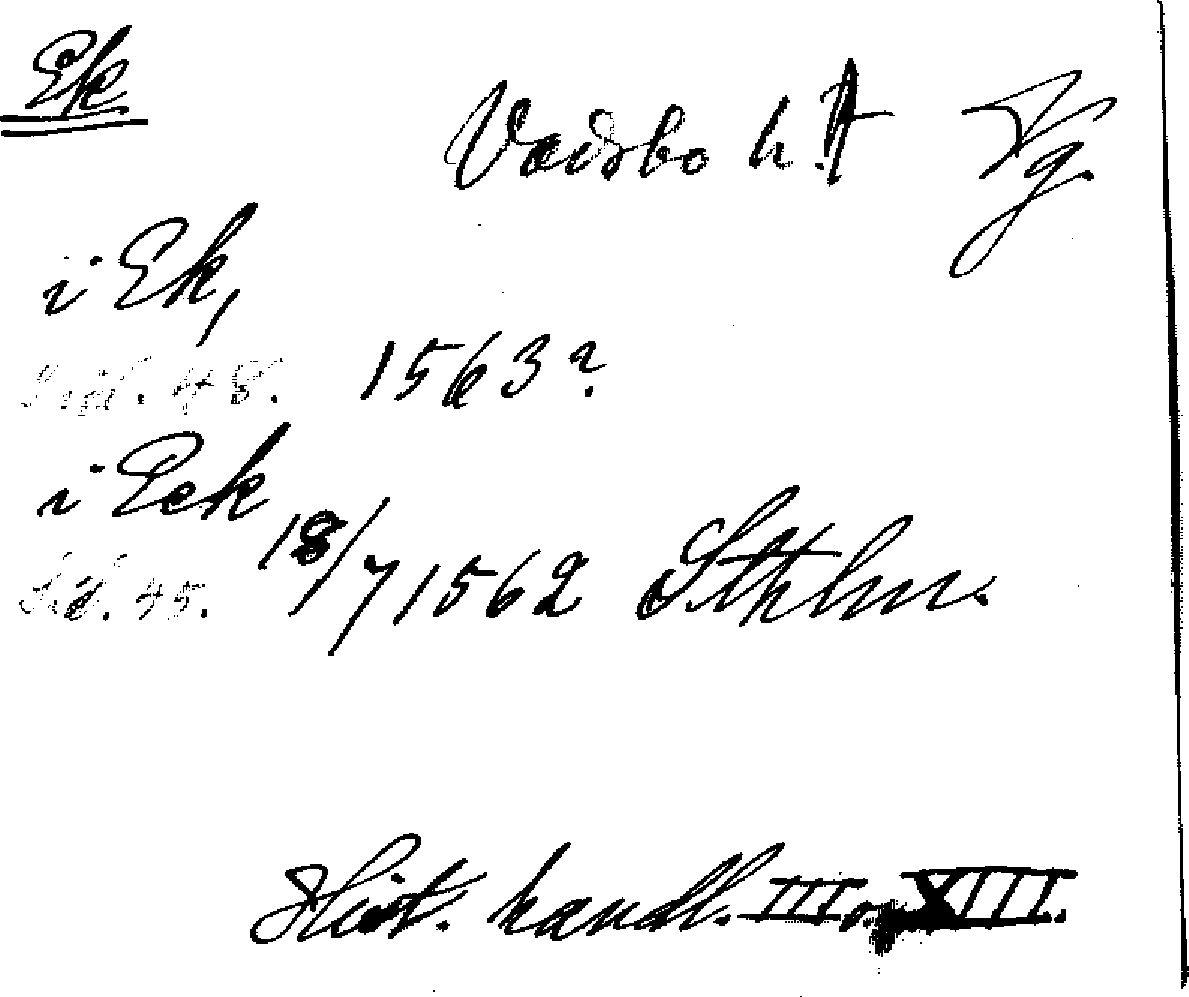 Ek
Vadsbo h. Vg.
i Ek,
Sid. 48. 1563?
i Eek
Sid. 45. 18/7 1562 Sthlm.
Hist. handl. III o. XIII.